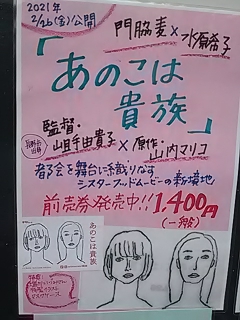 2021年
2/26(金)公開
門脇麦×水原希子
「あのこは
貴族」
長野台出身
監督・
岨手由貴子×原作・
山内マリコ
都会を舞台に織りなす
シスターフッドムービーの新境地
前売券発売中!!1,400円
(一般)
あのこは
貴族